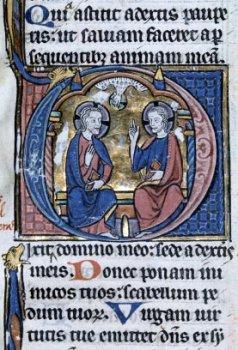 Quia astitit adextris paupe
ris: ut saluam faceret a ꝑ
sequentibꝫ animam meā.
Dixit domino meo: sede a dextris
meis. Donec ponam ini
micos tuos: scabellum pe
dum tuoꝝ. Virgam uir
tutis tue emittet dn̄s ex sy